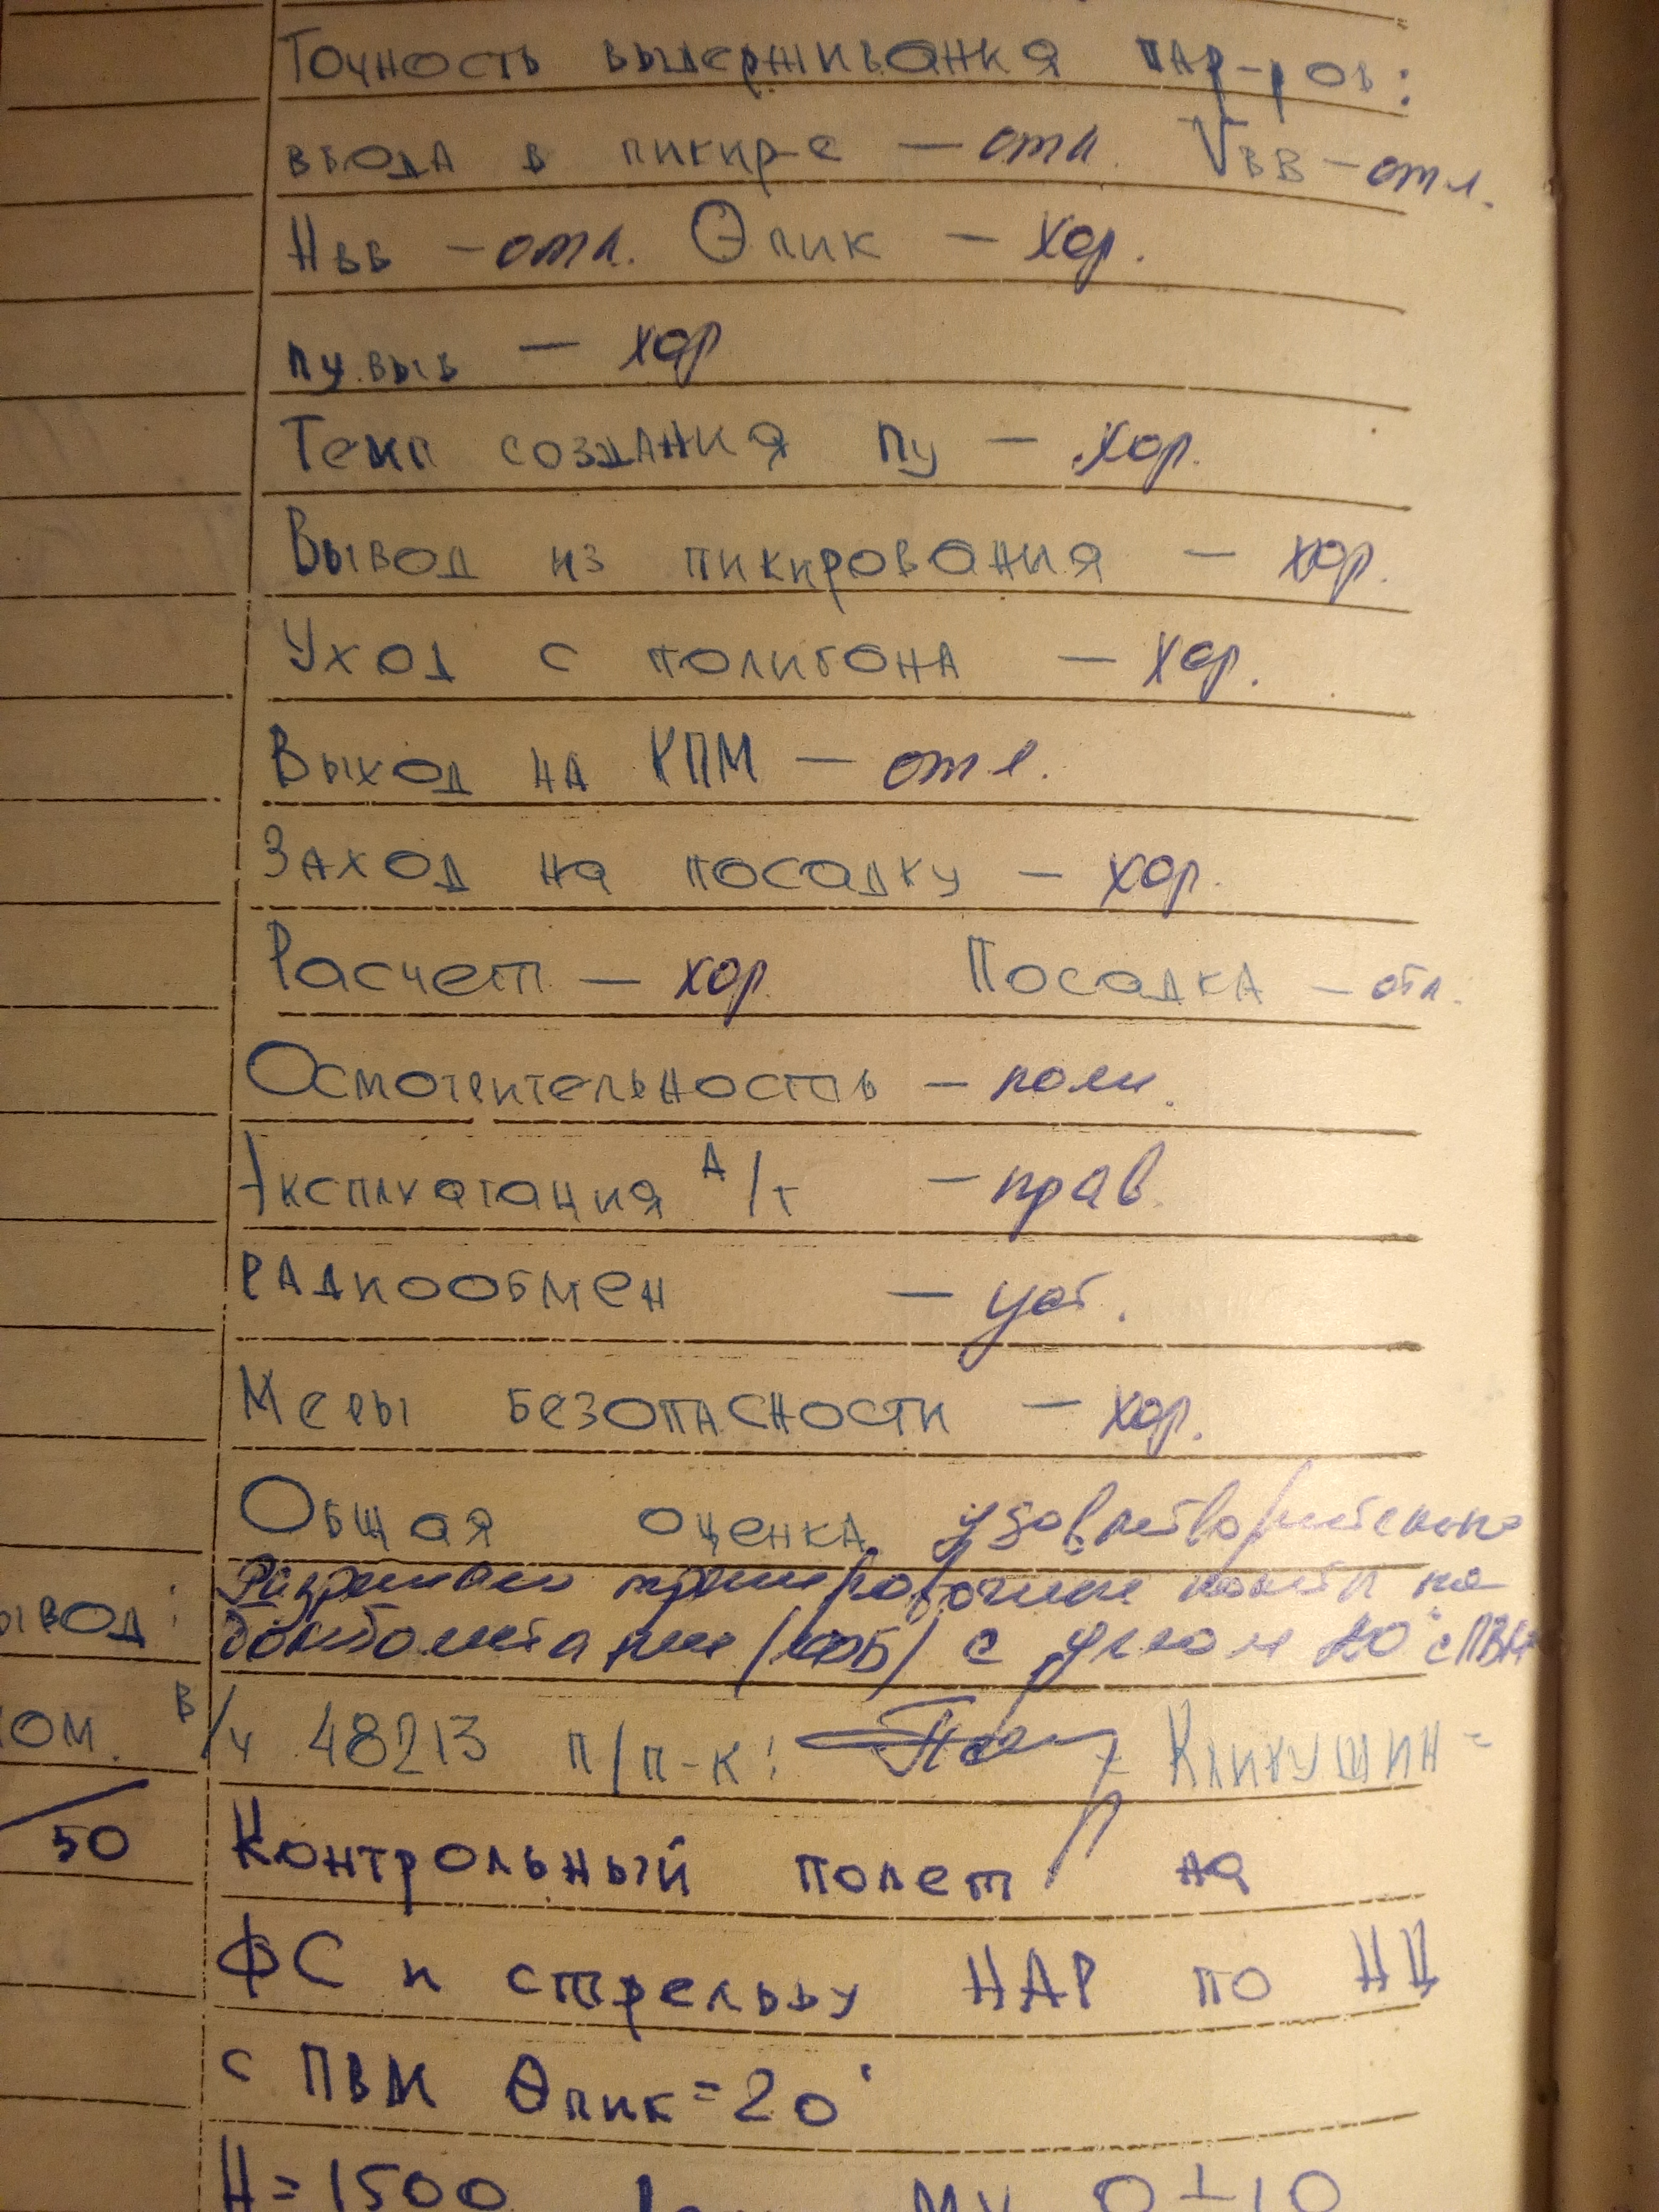 Точность выдерживания пар-ров:
ввода в пикир-е — отл. Vвв — отл.
Нвв — отл. Θпик — хор.
пу.выв — хор
Темп создания пу — хор.
Вывод из пикирования — хор.
Уход с полигона — хор.
Выход на КПМ — отл.
Заход на посадку — хор.
Расчет — хор Посадка — отл.
Осмотрительность — полн.
Эксплуатация А/т — прав.
Радиообмен — уст.
Меры безопасности — хор.
Общая оценка удовлетворительно
Разрешаю тренировочные полеты на
ывод: бомбометание с углом 20° с ПВМ
ком. в/ч 48213 п/п-к: Кликушин =
50 Контрольный полет на
ФС и стрельбу НАР по НЦ
с ПВМ Θпик = 20°
Н = 1500 МУ 0 ± 10